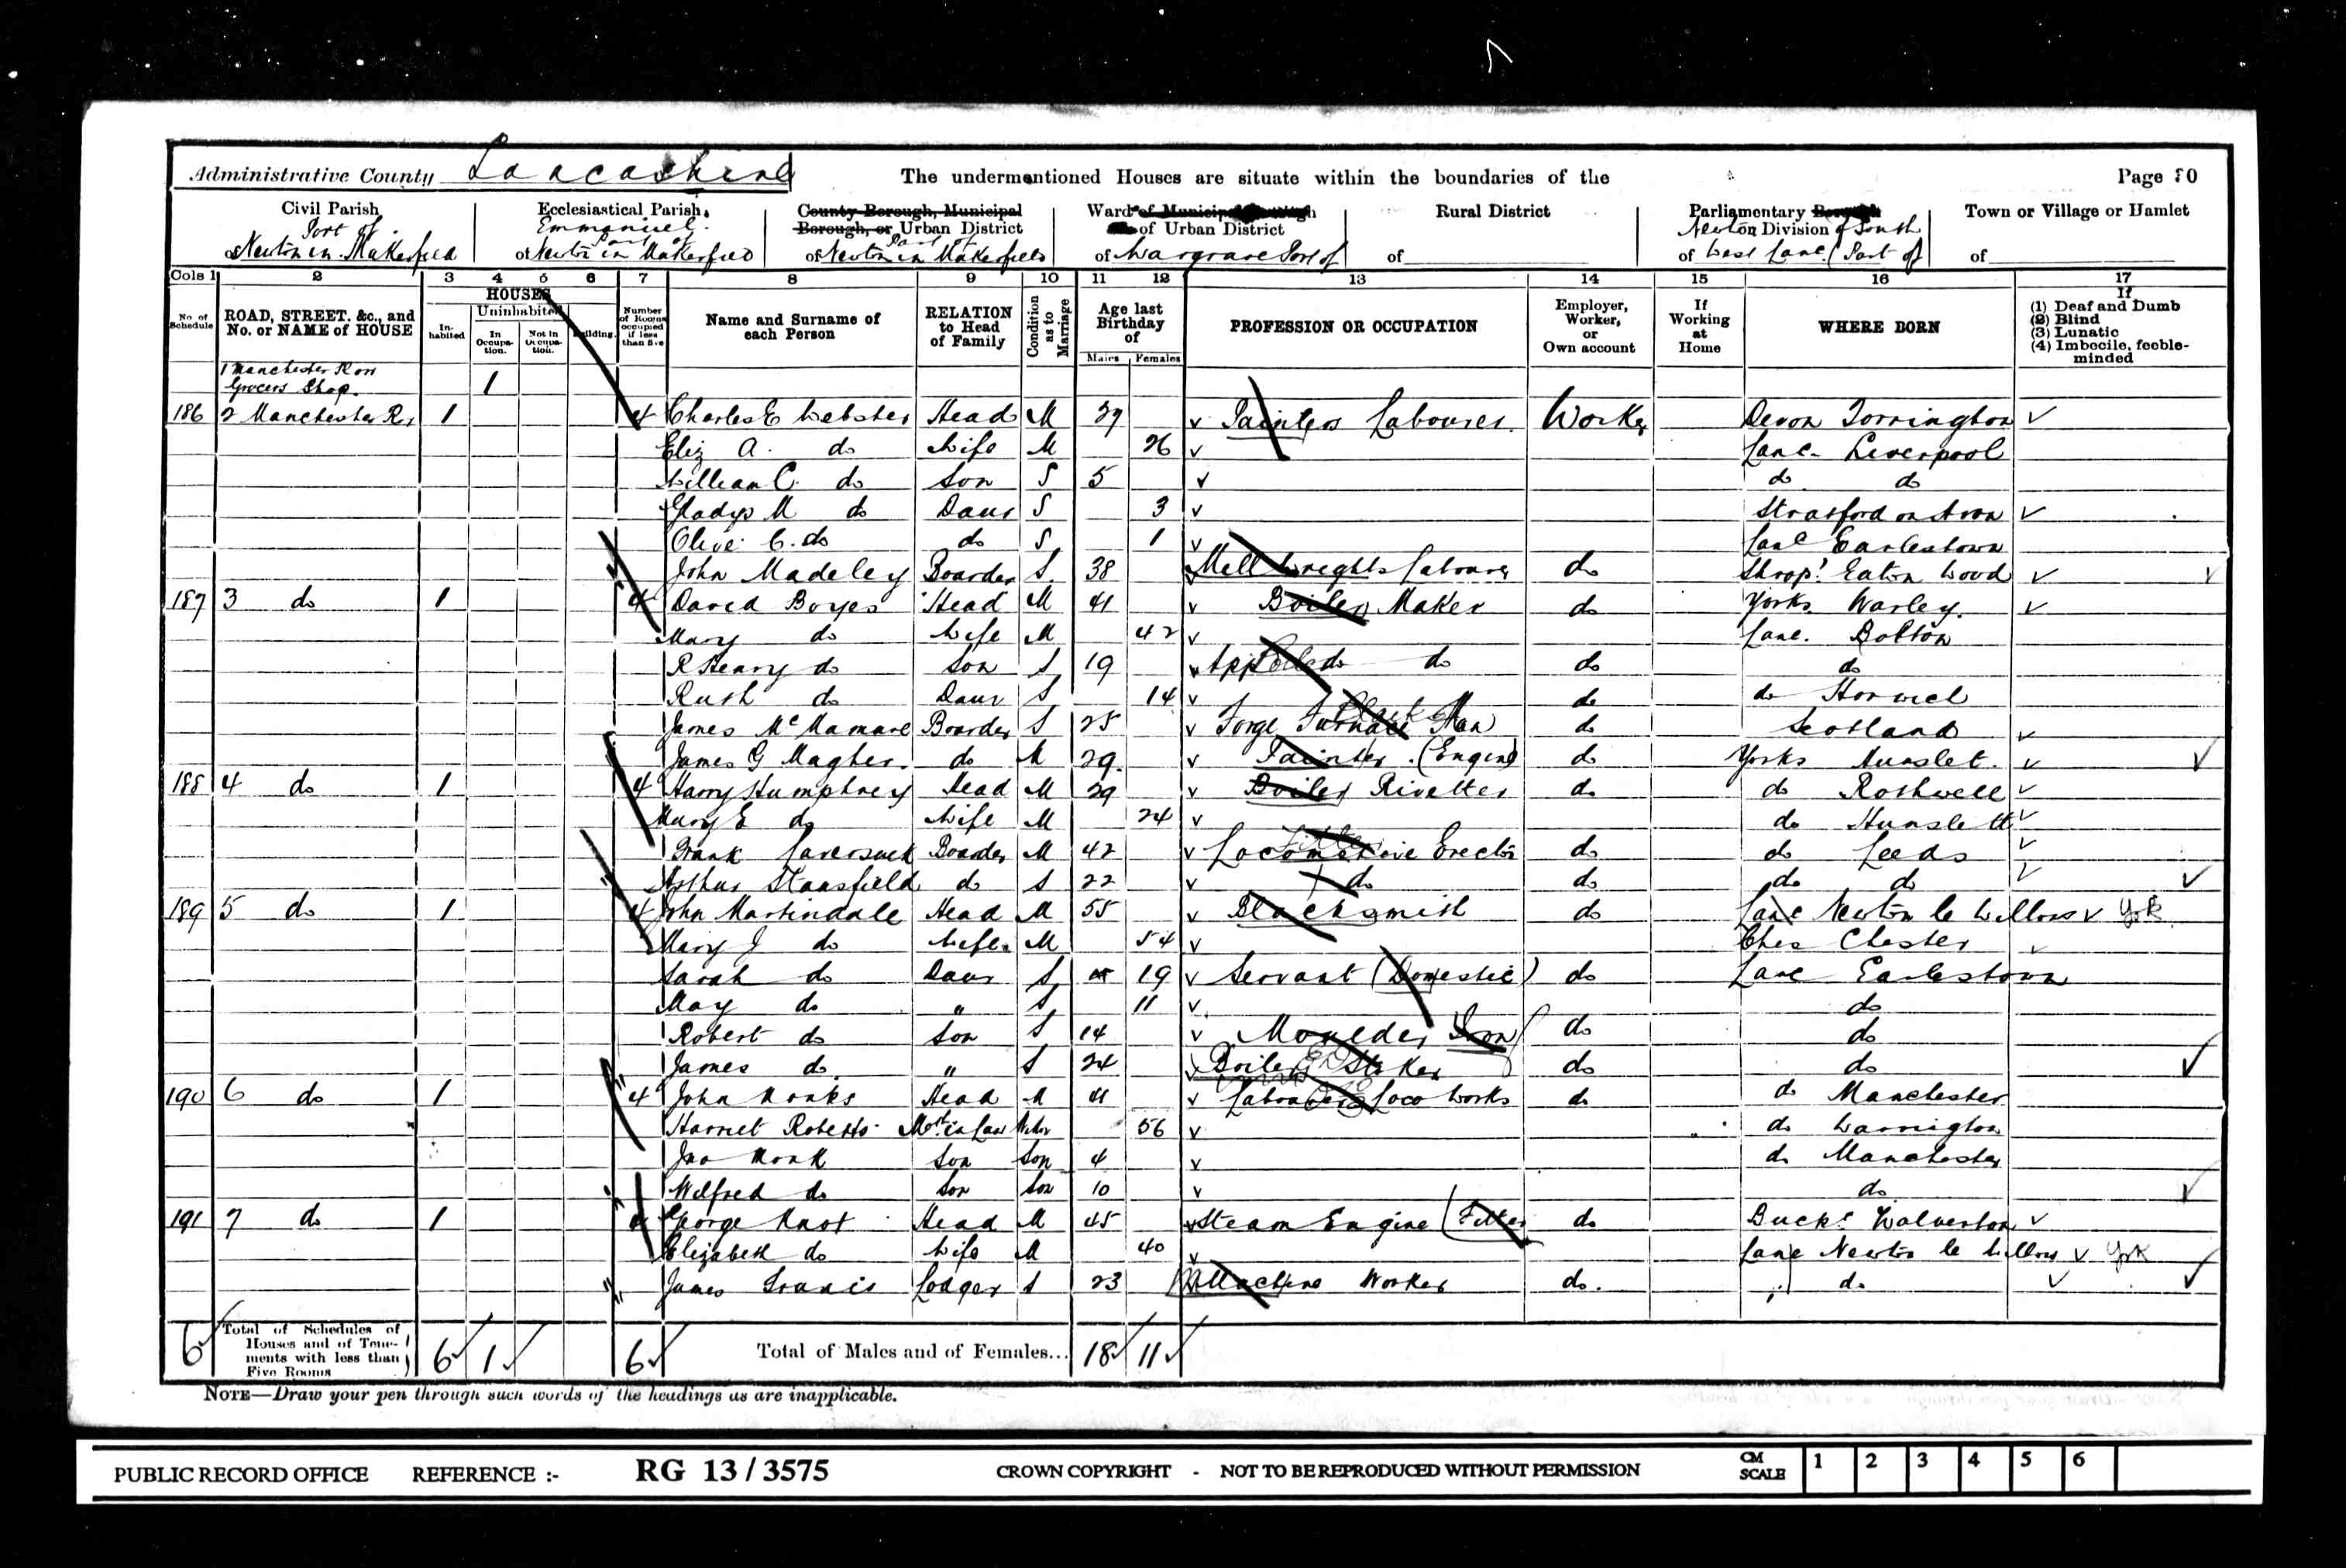 Administrative County Lancashire The undermentioned Houses are situate within the boundaries of the Page 80
Civil Parish Ecclesiastical Parish, County Borough, Municipal Borough, or Urban District Ward of Municipal Borough of Urban District Rural District Parliamentary Borough Division Town or Village or Hamlet
Part of Emmanuel. Part of Newton of South
of Newton in Makerfield of Newton in Makerfield of Newton in Makerfield of Wargrave Part of of of West Lanc. (Part of of
Cols 1 2 3 4 5 6 7 8 9 10 11 12 13 14 15 16 17
No. of Schedule ROAD, STREET, &c., and No. or NAME of HOUSE HOUSES In-habited Uninhabited In Occupa-tion. Not in Occupa-tion. Building. Number of Rooms occupied if less than five Name and Surname of each Person RELATION to Head of Family Condition as to Marriage Age last Birthday of Males Females PROFESSION OR OCCUPATION Employer, Worker, or Own account If Working at Home WHERE BORN If (1) Deaf and Dumb (2) Blind (3) Lunatic (4) Imbecile, feeble-minded
1 Manchester Row Grocers Shop. 1
186 2 Manchester Rw 1 4 Charles E Webster Head M 29 Painters Labourer. Worker Devon Torrington
Eliz A. do Wife M 26 Lanc. Liverpool
William C. do Son S 5 do do
Gladys M do Daur S 3 Stratford on Avon
Olive C. do do S 1 Lanc Earlestown
John Madeley Boarder S. 38 Mill Wrights Labourer do Shrop. Eaton Wood
187 3 do 1 4 David Boyes Head M 41 Boiler Maker do Yorks Warley.
Mary do Wife M 42 Lanc. Bolton
R Henry do Son S 19 App do do do do
Ruth do Daur S 14 do do Horwich
James McMamare Boarder S 25 Forge Furnace Man do Scotland
James G Magher. do M 29. Painter. (Engine) do Yorks Hunslet.
188 4 do 1 4 Harry Humphrey Head M 29 Boiler Rivetter do do Rothwell
Mary E do Wife M 24 do Hunslett
Frank Boarder M 42 Locomotive Erector do do Leeds
Arthur Stansfield do S 22 do do do do
189 5 do 1 4 John Martindale Head M 55 Blacksmith do Lanc Newton le Willows York
Mary J do Wife. M 54 Ches Chester
Sarah do Daur S 19 Servant (Domestic) do Lanc Earlestown
May do " S 11 do
Robert do Son S 14 Moulder Iron do do
James do. " S 24 Boiler Stoker do do
190 6 do 1 4 John Monks Head M 41 Labourer Loco Works do do Manchester
Harriet Roberts. Moth in Law Widw 56 do Warrington
Jno Monk Son Son 4 do Manchester
Wilfred do Son Son 10 do
191 7 do 1 4 George Knot Head M 45 Steam Engine (Fitter do Bucks Wolverton
Elizabeth do Wife M 40 Lanc Newton le Willows York
James Francis Lodger S 23 Machine Worker do. do
6 Total of Schedules of Houses and of Tene-ments with less than Five Rooms 6 1 6 Total of Males and of Females... 18 11
NOTE—Draw your pen through such words of the headings as are inapplicable.
PUBLIC RECORD OFFICE REFERENCE :- RG 13 / 3575 CROWN COPYRIGHT - NOT TO BE REPRODUCED WITHOUT PERMISSION CM SCALE 1 2 3 4 5 6